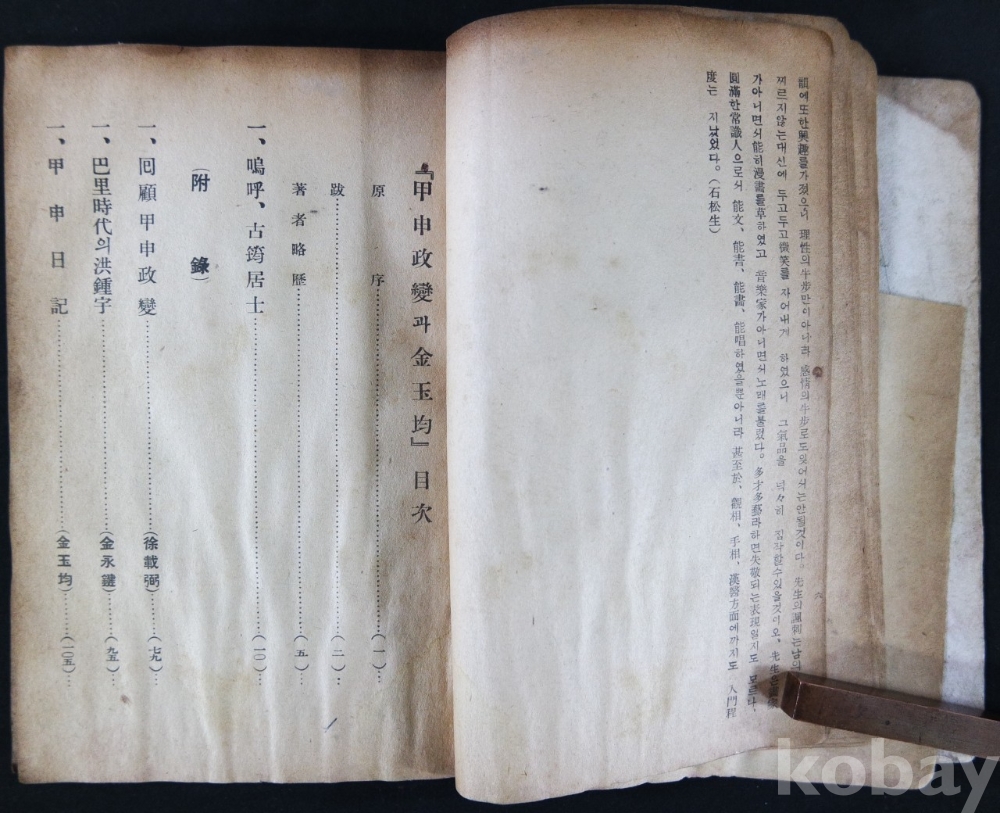 謔에 또한 興趣를 가졌으니 理性의 牛步만이 아니라 感情의 牛步로도 잊어서는 안될것이다. 先生의 諷刺는 남의
찌르지않는대신에 두고두고 微笑를 자어내게 하였으니 그 氣品을 넉々히 짐작할수있을것이오, 先生은
가아니면서 能히 漫畫를 草하였고 音樂家가아니면서 노래를불렀다. 多才多藝라하면 失敬되는 表現일지도 모르나,
圓滿한 常識人으로서 能文、能書、能畫、能唱하였을뿐아니라 甚至於、觀相、手相、漢醫方面에까지도 入門程
度는 지났었다。(石松生)
『甲申政變과 金玉均』 目次
原序……(一)
跋……(二)
著者略歷……(五)
一、嗚呼、古筠居士……(一〇)
(附錄)
一、回顧甲申政變……(徐載弼)……(七九)
一、巴里時代의 洪鍾宇……(金永鍵)……(九五)
一、甲申日記……(金玉均)……(一〇五)
kobay